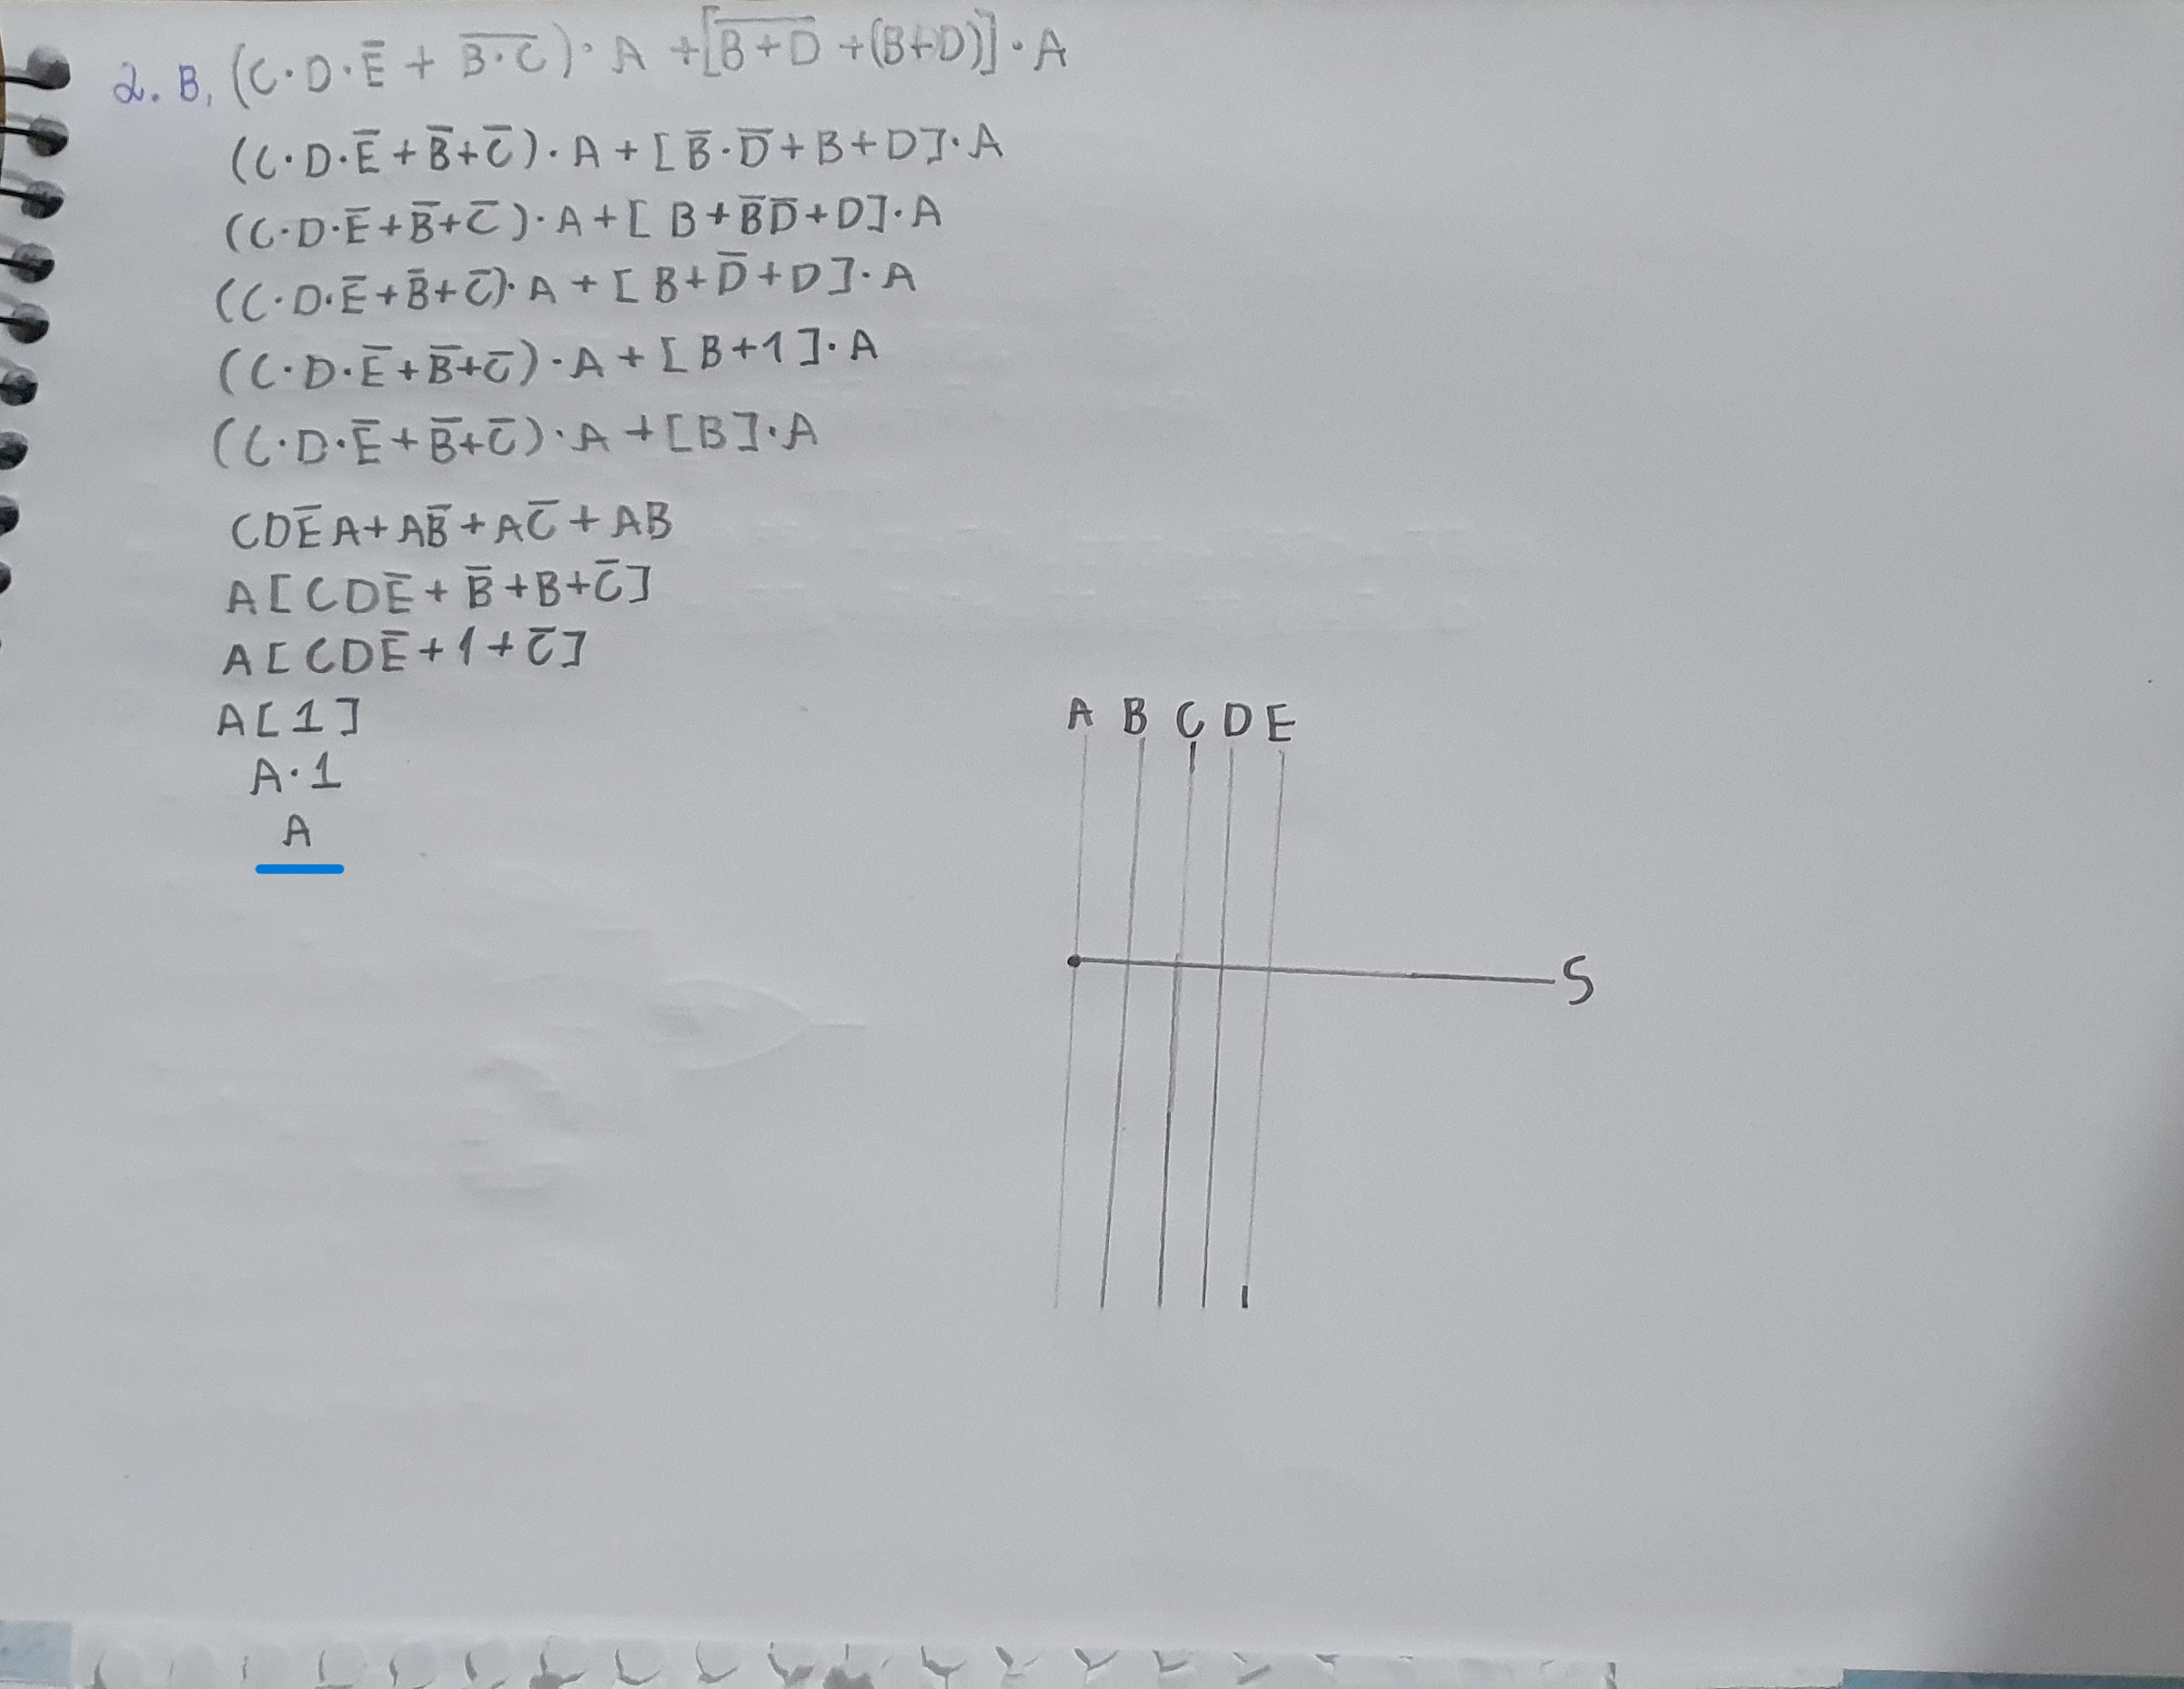 2. B, (C·D·E̅ + B̅·̅C̅)· A +[B̅+̅D̅ +(B+D)]·A
(C·D·E̅+B̅+C̅)·A+[B̅·D̅+B+D]·A
(C·D·E̅+B̅+C̅)·A+[B+B̅D̅+D]·A
(C·D·E̅+B̅+C̅)·A+[B+D̅+D]·A
(C·D·E̅+B̅+C̅)·A+[B+1]·A
(C·D·E̅+B̅+C̅)·A+[B]·A
CDE̅A+AB̅+AC̅+AB
A[CDE̅+B̅+B+C̅]
A[CDE̅+1+C̅]
A[1]
A·1
A
A B C D E
S